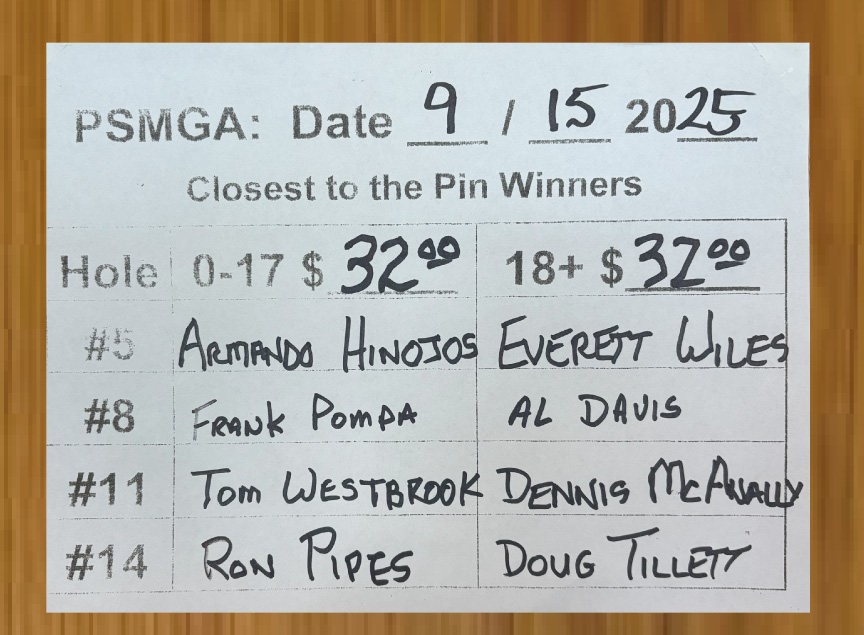 PSMGA: Date 9 / 15 2025
Closest to the Pin Winners
Hole 0-17 $ 32.00 18+ $ 32.00
#5 ARMANDO HINOJOS EVERETT WILES
#8 FRANK POMPA AL DAVIS
#11 TOM WESTBROOK DENNIS MCANALLY
#14 RON PIPES DOUG TILLETT